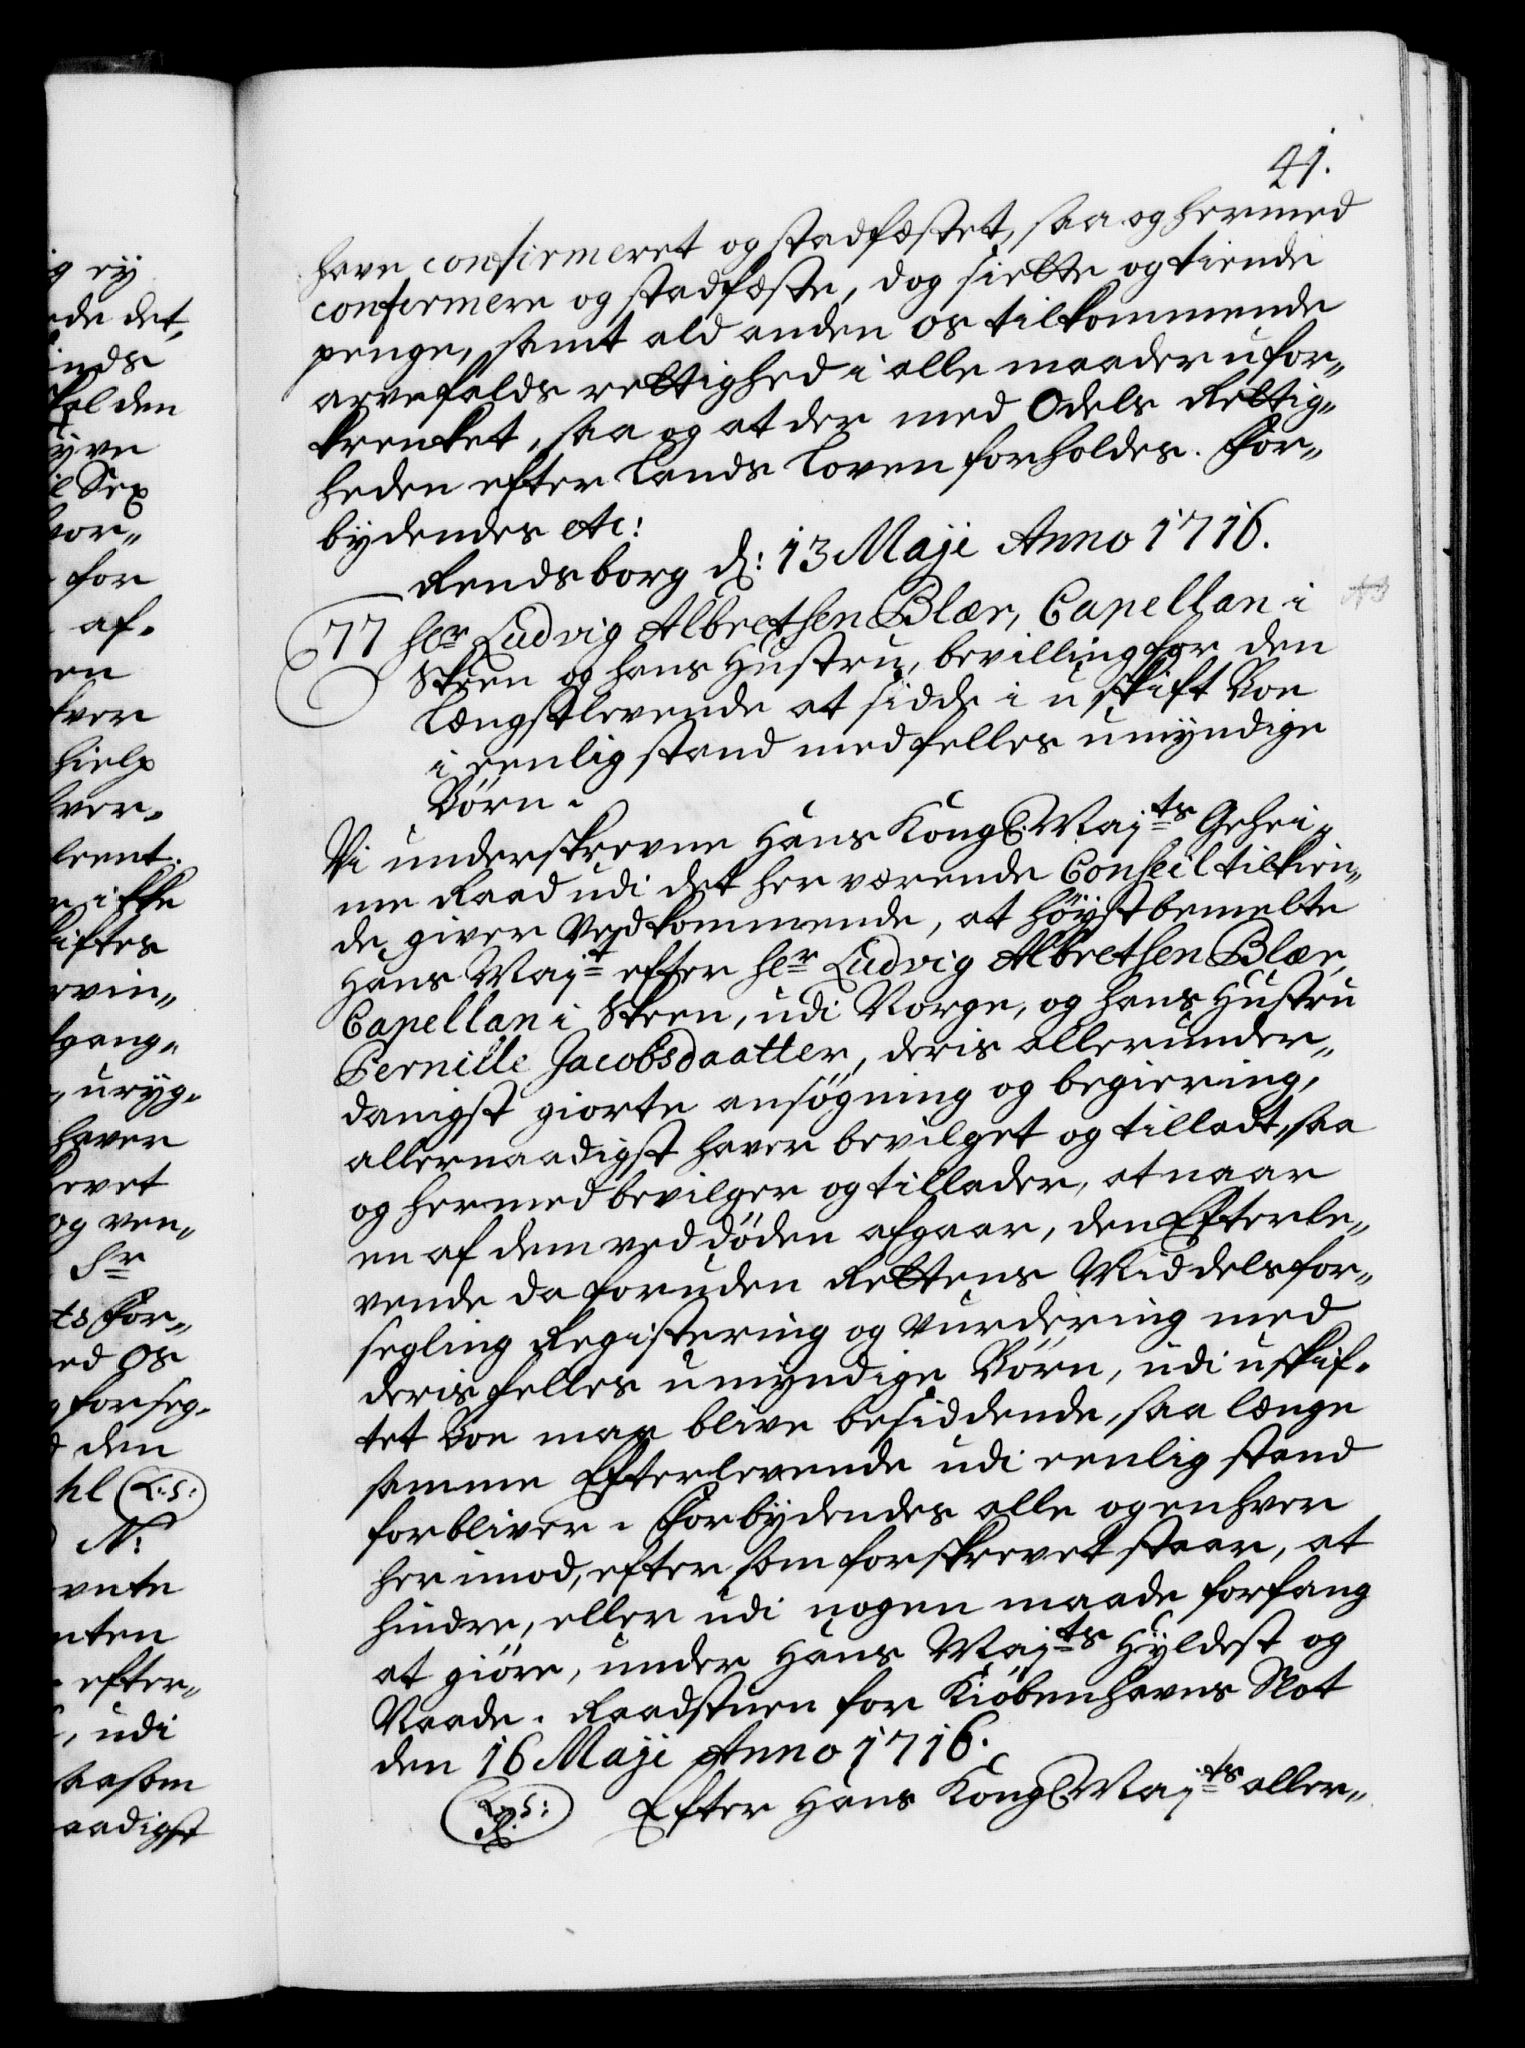 41.
have confirmeret og stadfæstet, saa og hermed
confirmere og stadfæste, dog siette og tiende
penge, samt ald anden os tilkommende
arvefalds rettighed i alle maader ufor„
krenket, saa og at der med Odels Rettig„
heden efter Lands Loven forholdes. For„
bydendes etc:
Rendsborg d: 13 Maji Anno 1716.
77 hr Ludvig Albrethsen Blær, Capellan i
Skeen og hans Hustru, bevilling for den
Længstlevende at sidde i uskift Boe
i eenlig stand med felles umyndige
Børn.
Vi underskrevne Hans Kongl. Majts Gehei„
me Raad udi det her værende Conseil tilkien„
de giver Vedkommende, at høystbemelte
Hans Majt efter hr Ludvig Albrethsen Blær,
Capellan i Skeen, udi Norge, og hans Hustru
Pernille Jacobsdaatter, deris allerunder„
danigst giorte ansøgning og begiering,
allernaadigst haver bevilget og tilladt, saa
og hermed bevilger og tillader, at naar
en af dem ved døden afgaar, den Efterle„
vende da foruden Rettens Middels for„
segling Registering og Vurdering med
deris felles umyndige Børn, udi uskif„
tet Boe maa blive besiddende, saa længe
samme Efterlevende udi eenlig stand
forbliver. Forbydendes alle og enhver
her imod, efter som forskrevet staar, at
hindre, eller udi nogen maade forfang
at giöre, under Hans Majts Hyldest og
Naade. Raadstuen for Kiøbenhavns Slot
den 16 Maji Anno 1716.
L:S: Efter Hans Kongl. Majts aller„
R.
g ey
de det,
inds
kal den
yve
l Sex
vor„
for
af„
en
hver
hielp
hver„
leent.
ikke
kiftes
rvin„
gang„
uryg„
haver
levet
og ven„
Sr
ts For„
ed Os
forseg„
den
hl L:S:
N:
vente
nten
efter„
, udi
saasom
aadigst